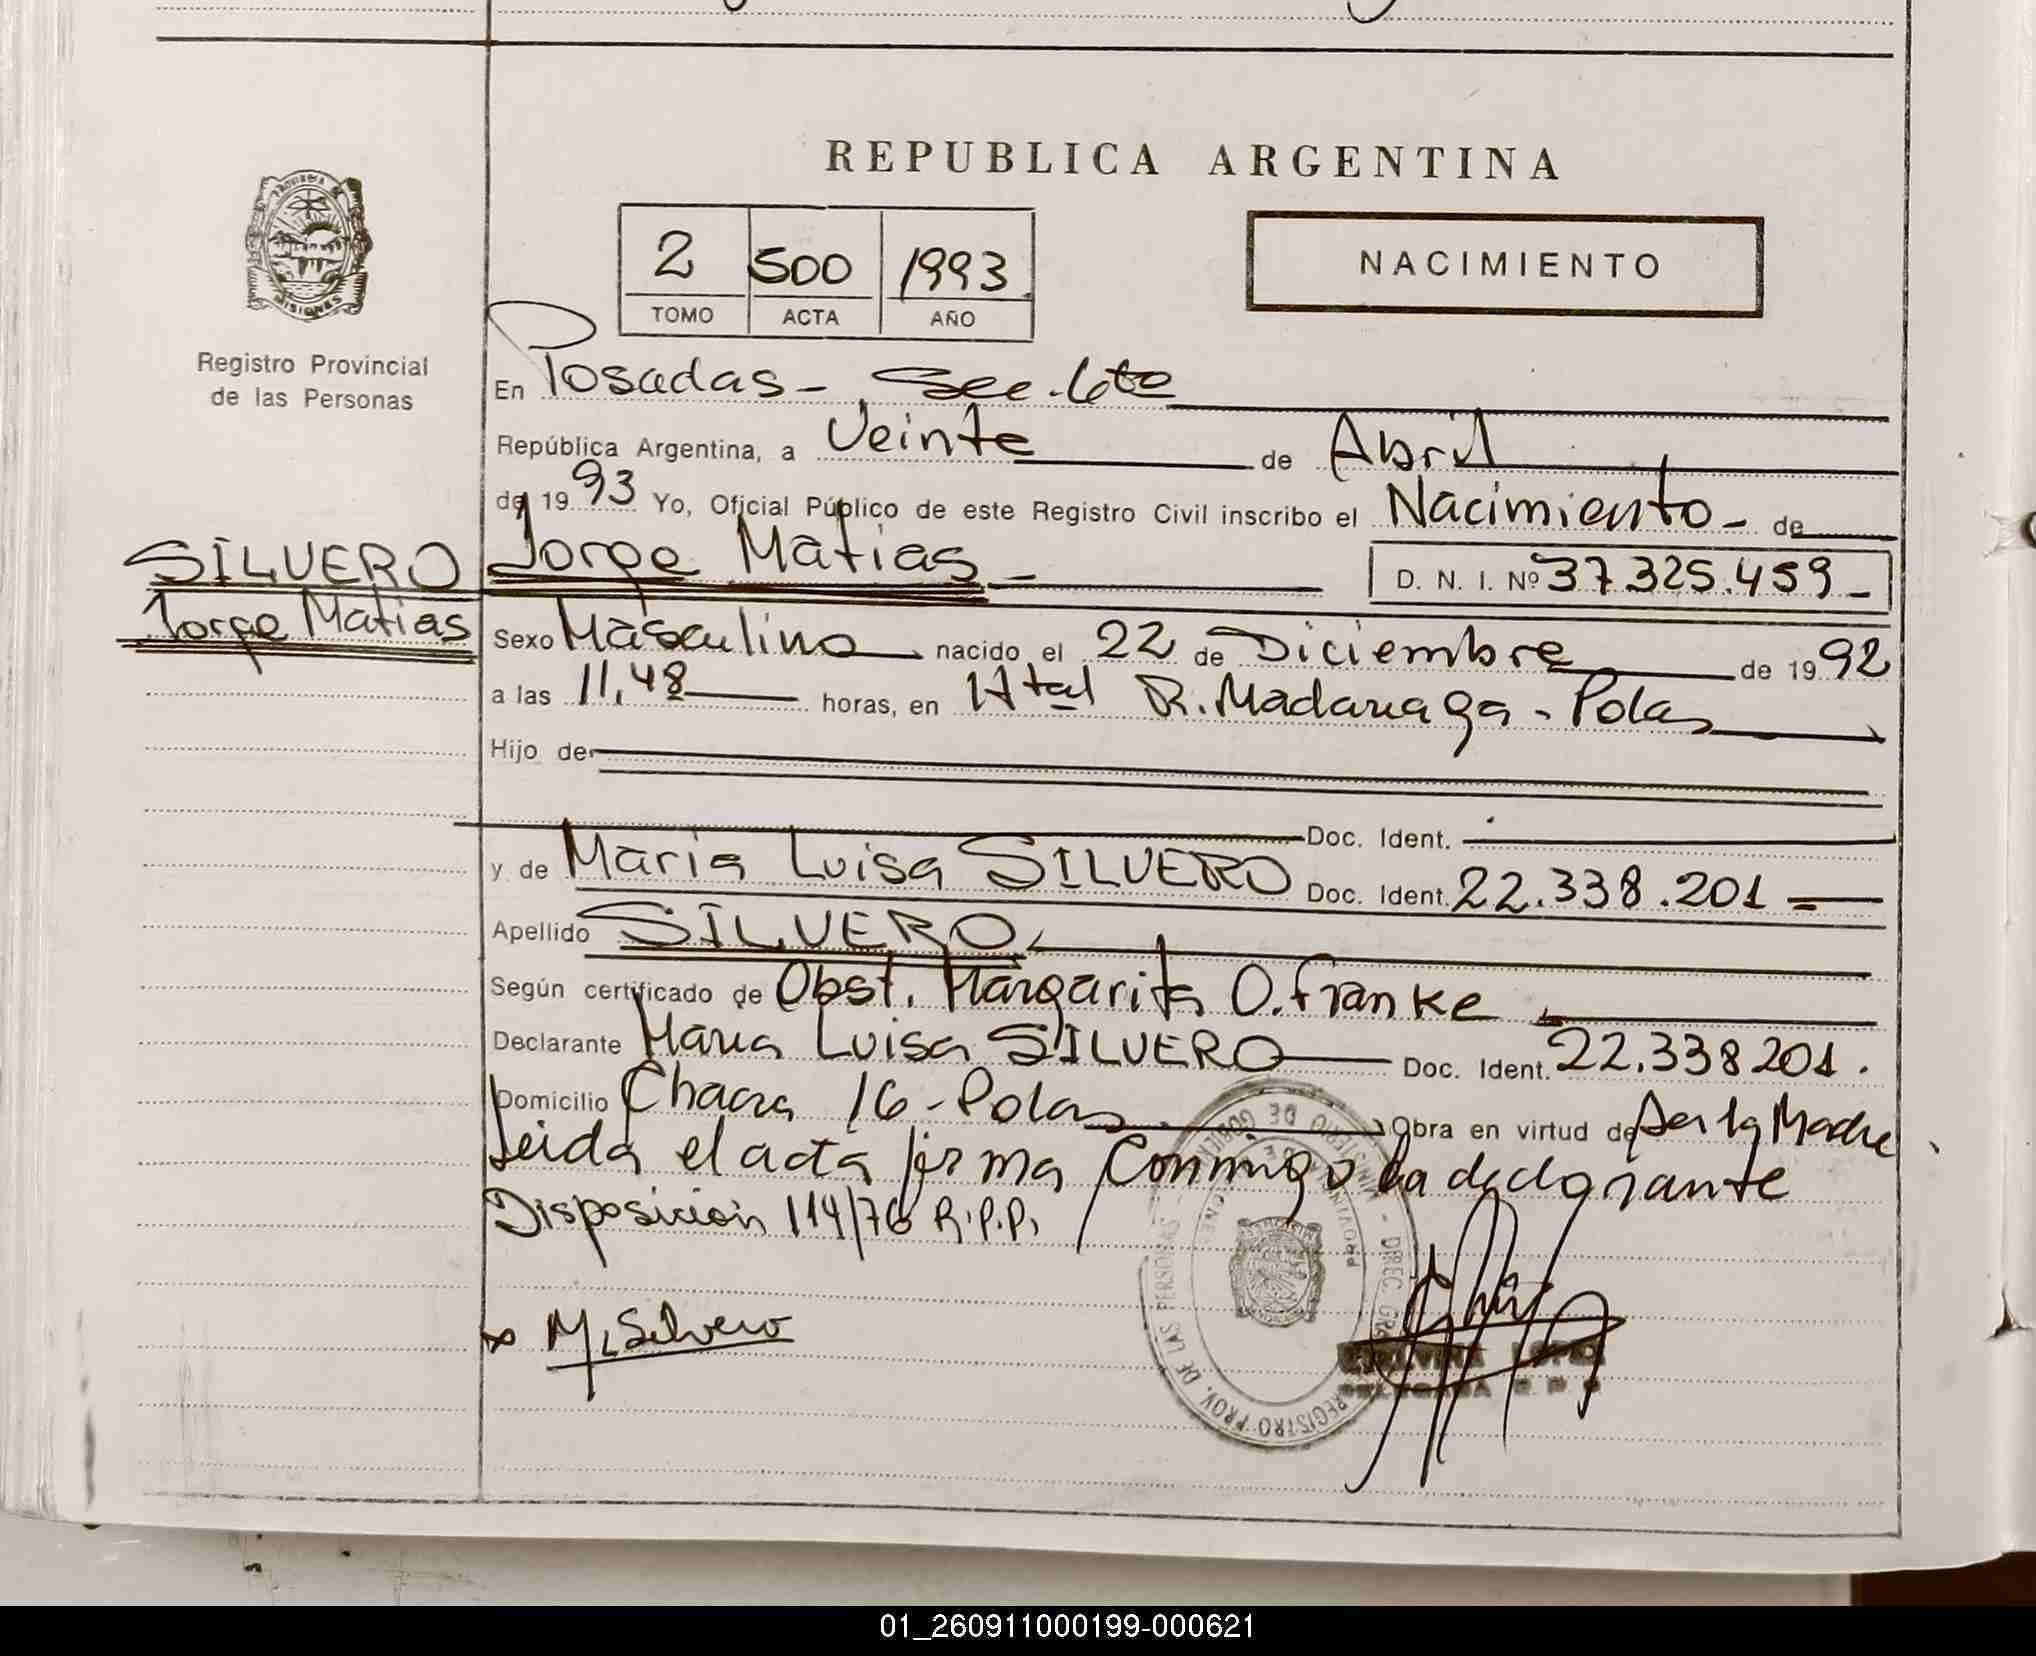 REPUBLICA ARGENTINA
2 500 1993
TOMO ACTA AÑO
NACIMIENTO
MISIONES
Registro Provincial
de las Personas
En Posadas -
República Argentina, a Veinte de Abril
de 1993 Yo, Oficial Público de este Registro Civil inscribo el Nacimiento - de
SILVERO
Jorge Matias
Jorge Matias - D. N. I. Nº 37.325.459 -
Sexo Masculino nacido el 22 de Diciembre de 1992
a las 11,48 horas, en Htal R. Madariaga - Pdas
Hijo de
Doc. Ident.
y de Maria Luisa SILVERO Doc. Ident. 22.338.201
Apellido SILVERO
Según certificado de Obst. Margarita O. Franke
Declarante Maria Luisa SILVERO Doc. Ident. 22.338201.
Domicilio Chacra 16 - Pdas Obra en virtud de Ser la Madre
Leida el acta firma conmigo la declarante
Disposicion 114/76 R.P.P.
M L Silvero
REGISTRO PROV. DE LAS PERSONAS
01_260911000199-000621